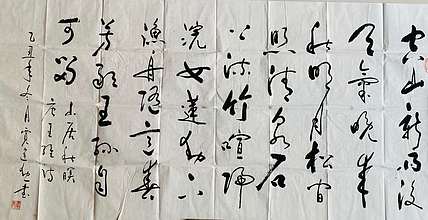 空山新雨後
天氣晚來
秋明月松間
照清泉石
上流竹喧歸
浣女蓮動下
漁舟隨意春
芳歇王孫自
可留
山居秋暝
唐王維詩
乙丑年冬月書